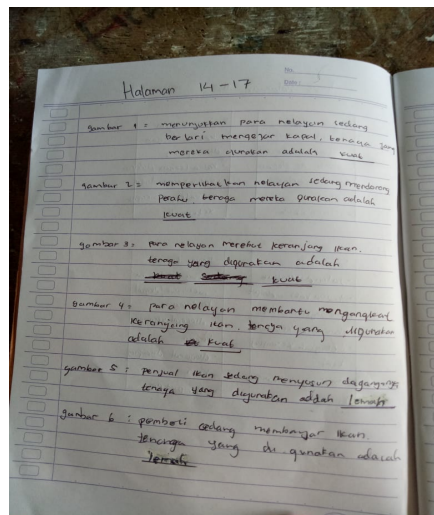 No.
Date:
Halaman 14-17
gambar 1 = menunjukkan para nelayan sedang
berlari mengejar kapal, tenaga yang
mereka gunakan adalah kuat
gambar 2 = memperlihatkan nelayan sedang mendorong
perahu tenaga mereka gunakan adalah
kuat
gambar 3 = para nelayan merebut keranjang ikan.
tenaga yang digunakan adalah
kuat
gambar 4 = para nelayan membantu mengangkat
keranjang ikan. tenaga yang digunakan
adalah kuat
gambar 5 : penjual ikan sedang menyusun dagangannya
tenaga yang digunakan adalah lemah
gambar 6 : pembeli sedang membayar ikan.
tenanga yang di gunakan adalah
lemah